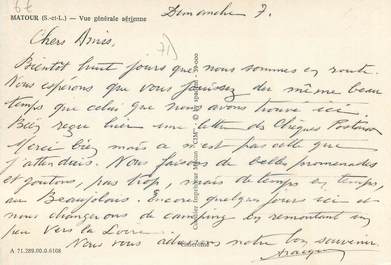 67
MATOUR (S.-et-L.) — Vue générale aérienne
Dimanche 7.
Chers Amis,
71)
Bientôt huit jours que nous sommes en route.
Nous espérons que vous jouissez du même beau
temps que celui que nous avons trouvé ici.
reçu hier une lettre des Chèques Postaux
Merci mais ce n'est pas celle que
j'attendais. Nous faisons de belles promenades
et goûtons, pas trop, mais de temps en temps,
au Beaujolais. Encore quelques jours ici et
nous changerons de camping en remontant un
peu vers la Loire.
A 71.289.00.0.6108
Nous vous adressons notre bon souvenir